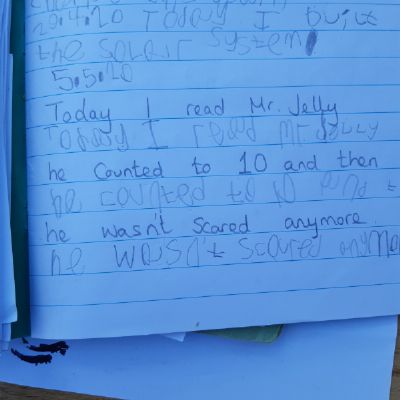 29.4.20 Today I built
the solar system
5.5.20
Today I read Mr. Jelly
Today I read Mr Jelly
he counted to 10 and then
he counted to 10 and t
he wasn't scared anymore.
he wasn't scared anymore